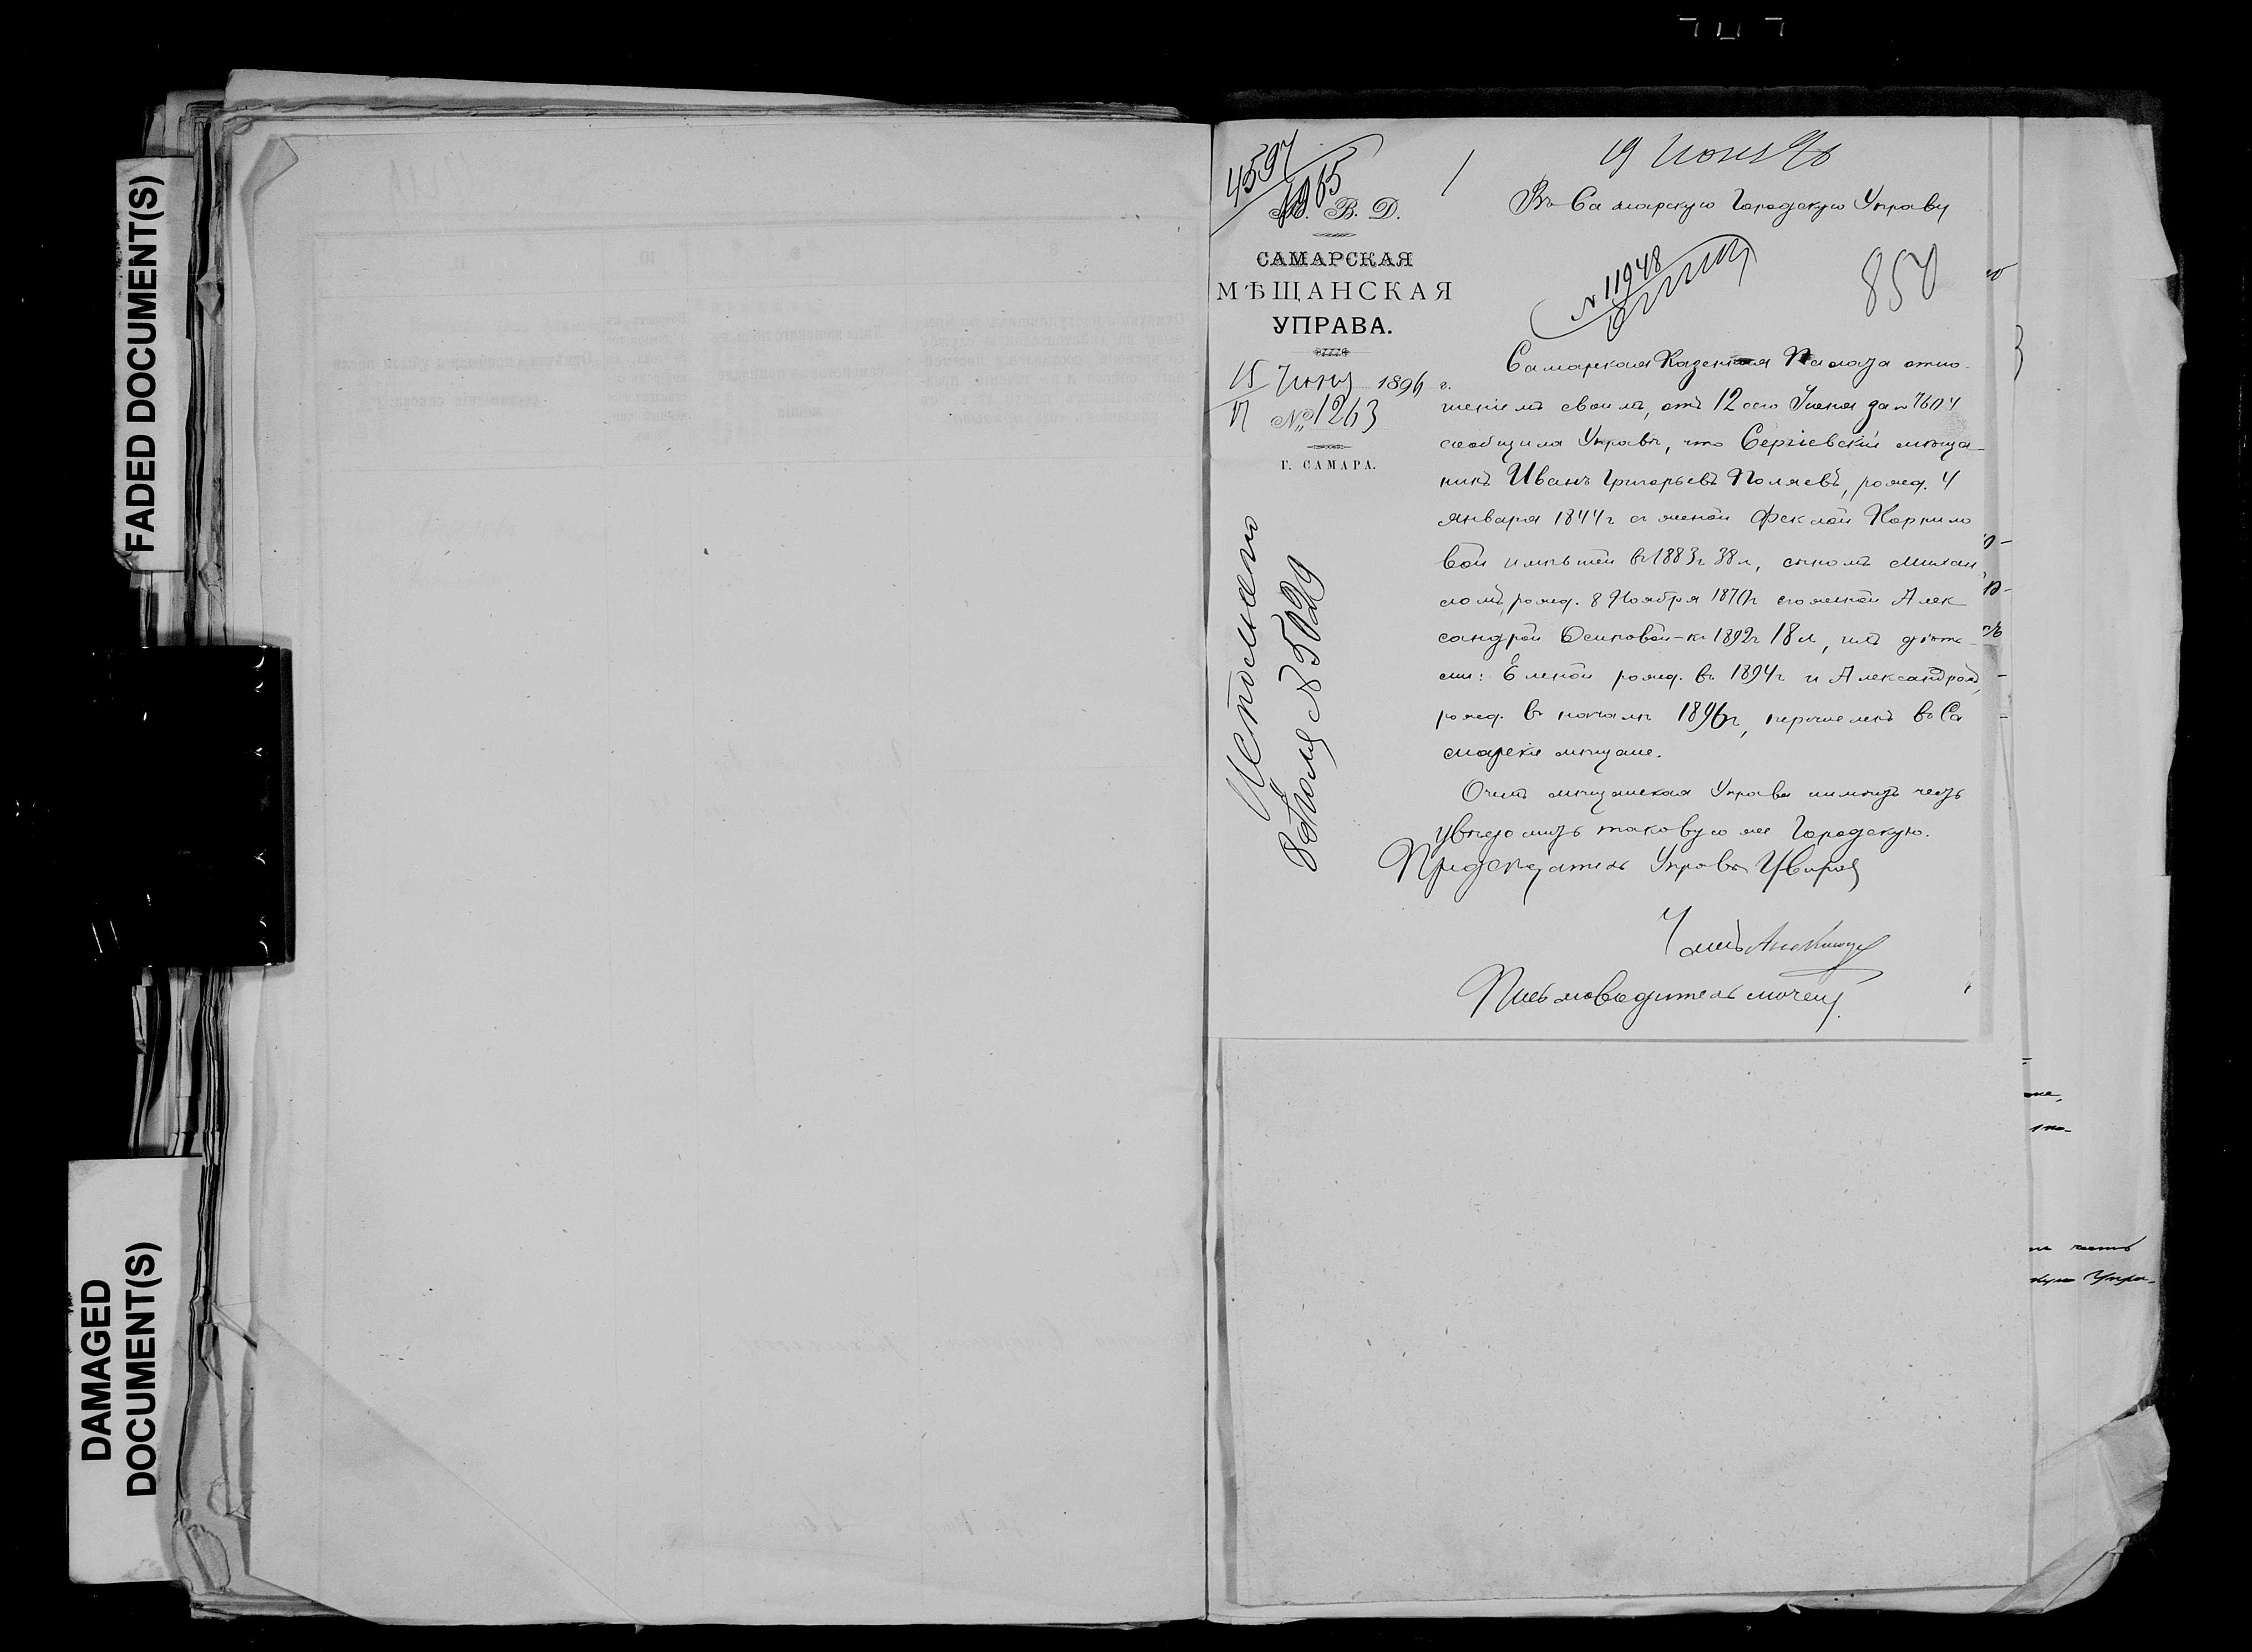 FADED DOCUMENT(S)
DAMAGED
DOCUMENT(S)
4597
1865
19 Июня 96
М. В. Д.
САМАРСКАЯ
МѢЩАНСКАЯ
УПРАВА.
15 Июня 1896 г.
17 № 1263
Г. САМАРА.
Въ Самарскую Городскую Управу
N 11948
850
Самарская Казенная Палата отно-
шенiемъ своимъ, отъ 12 сего Iюня за N 7604
сообщила Управѣ, что Сергiевскiй мѣща-
нинъ Иванъ Григорьевъ Поляевъ, рожд. 4
января 1844 г съ женой Феклой Корнило
вой имѣвшей въ 1883 г 38 л, сыномъ Михаи
ломъ, рожд. 8 Ноября 1870 г съ женой Алек
сандрой Осиповой - къ 1892 г 18 л, ихъ дѣтъ-
ми: Еленой рожд. въ 1894 г и Александромъ,
рожд. въ началѣ 1896 г, перечисленъ въ Са
марскiе мѣщане.
О чемъ мѣщанская Управа имѣетъ честь
увѣдомить таковую же Городскую.
Предсѣдатель Управы
Членъ
Письмоводитель
Исполнено
8 Iюля N 5029